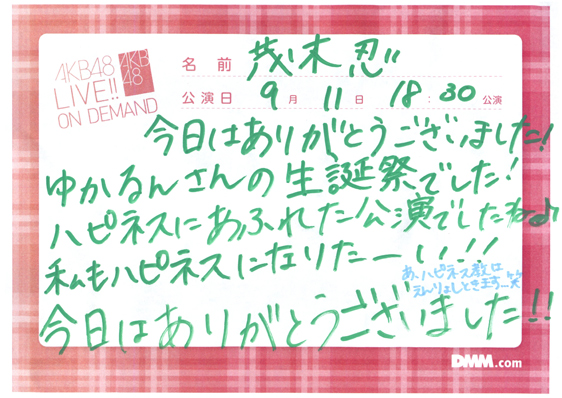 AKB48
LIVE!!
ON DEMAND
AKB
48
名前 茂木忍
公演日 9月11日 18:30 公演
今日はありがとうございました!
ゆかるんさんの生誕祭でした!
ハピネスにあふれた公演でしたね♪
私もハピネスになりたーい!!
あ、ハピネス教は
えんりょしときます…笑
今日はありがとうございました!!
DMM.com